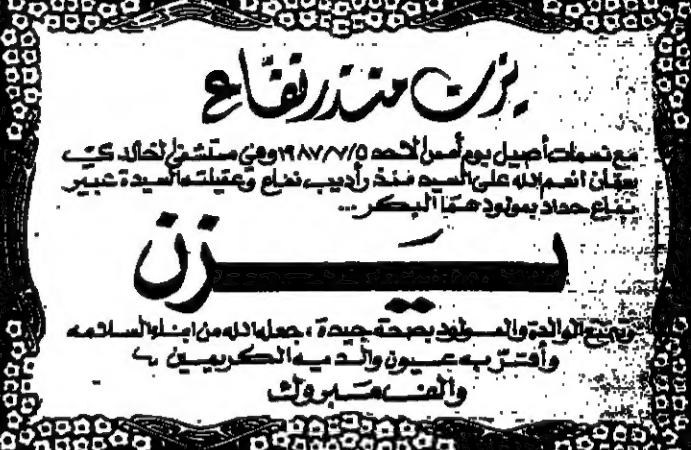 يزن منذر نفاع
مع نسمات أصيل يوم أمس الأحد ١٩٨٧/٧/٥ وفي مستشفى الخالدي
بعمان انعم الله على السيد منذر أديب نفاع وعقيلته السيدة عبير
نفاع حداد بمولودهما البكر ...
يزن
ويتمتع الوالدة والمولود بصحة جيدة ، جعله الله من ابناء السلامه
وأقر به عيون والديه الكريمين
والف مبروك